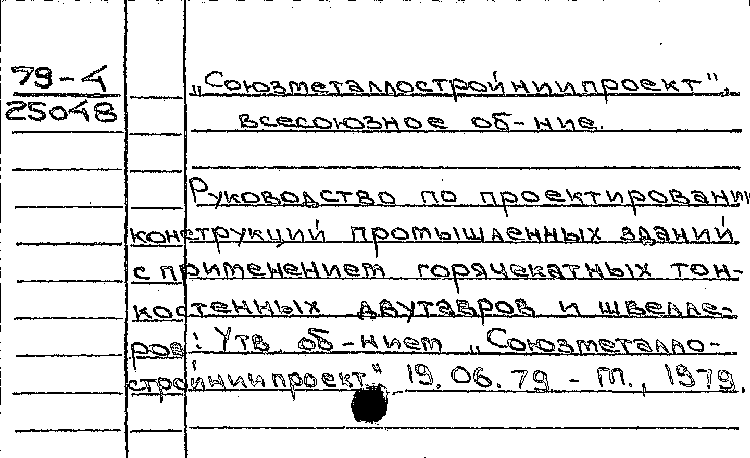 79-4
25048
„Союзметаллостройниипроект",
всесоюзное об-ние.
Руководство по проектировании
конструкций промышленных зданий
с применением горячекатных тон-
костенных двутавров и швелле-
ров: Утв. об-нием „Союзметалло-
стройниипроект" 19.06.79 - М., 1979.